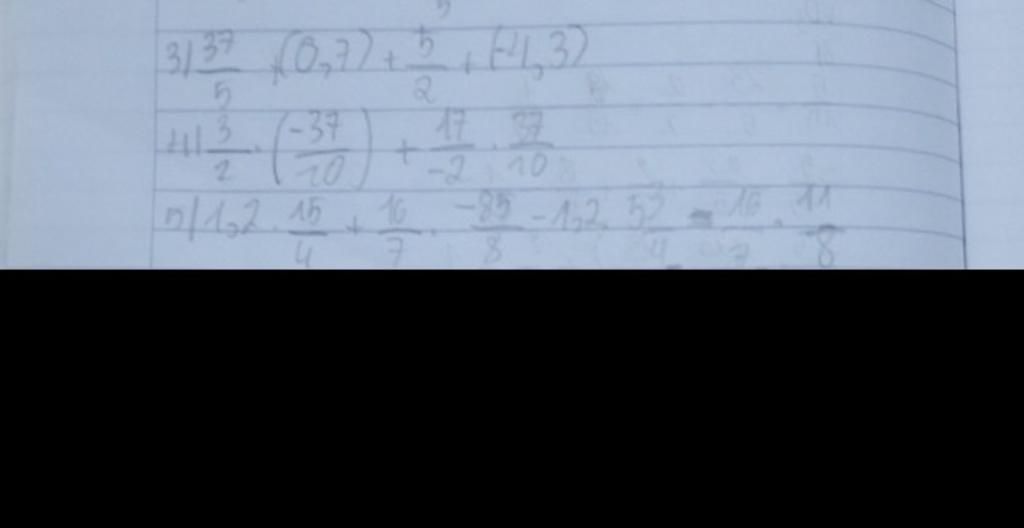 3) 37/5 · (0,7) + 5/2 + (-4,3)
4) 3/2 · (-37/10) + 17/-2 · 37/10
5) 1,2 · 15/4 + 16/7 · -85/8 - 1,2 · 53/4 - 16/7 · 11/8